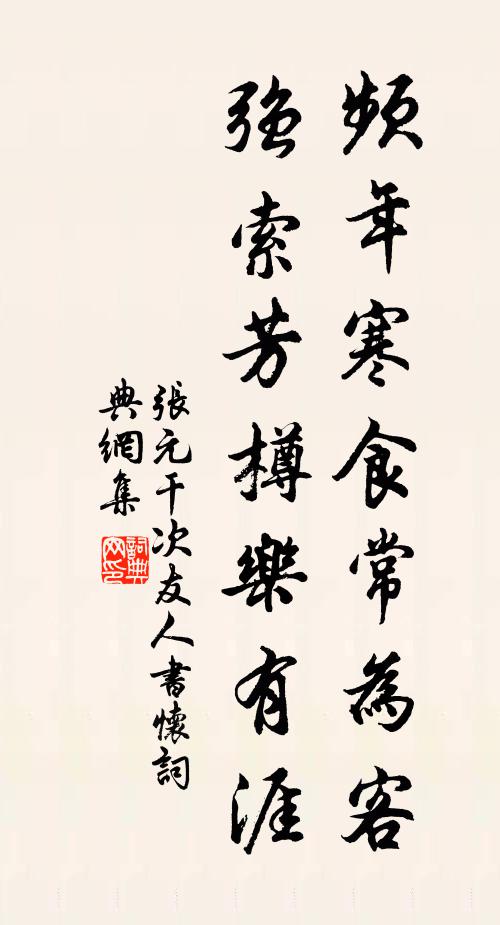 頻年寒食常為客
強索芳樽樂有涯
張元干次友人書懷詞
典網集
詞典網印